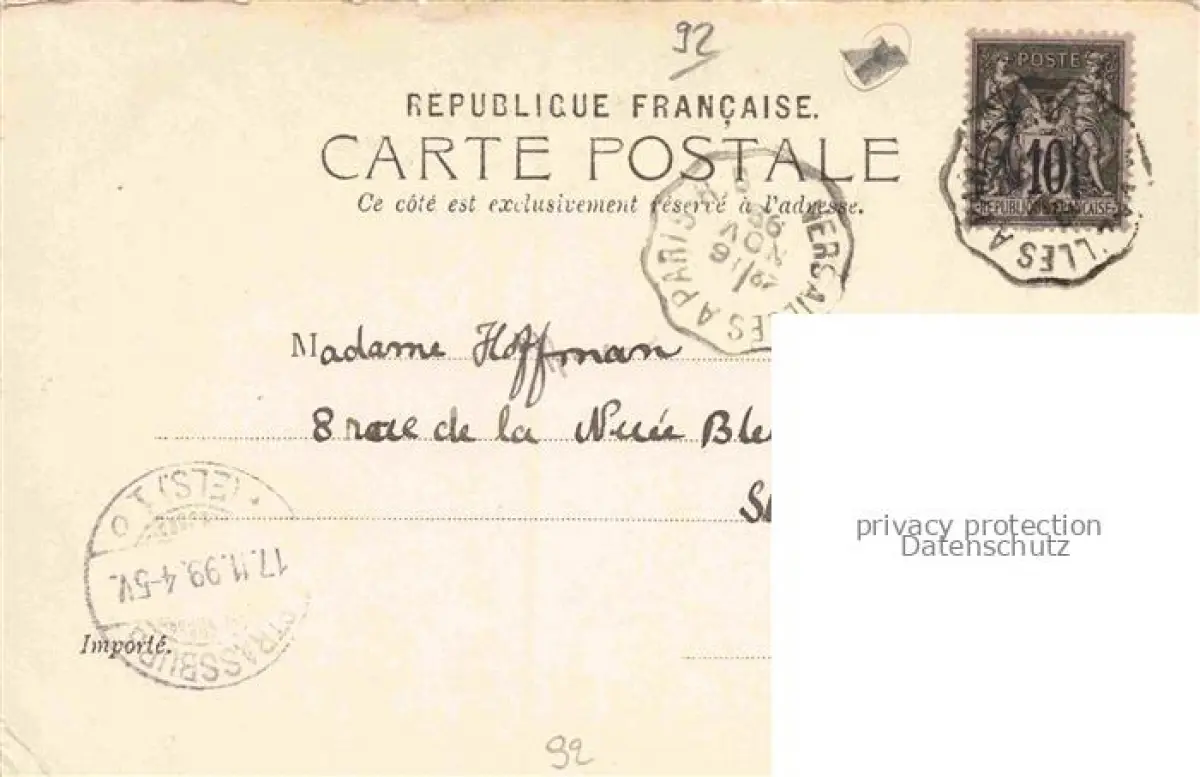 92
POSTE
10
REPUBLIQUE FRANÇAISE
RÉPUBLIQUE FRANÇAISE.
CARTE POSTALE
Ce côté est exclusivement réservé à l'adresse.
VERSAILLES A PARIS
16
NOV
Madame Hoffman
8 rue de la Nuée Ble
S
STRASSBURG (ELS.) 1
17.11.99.4-5V.
Importé.
92
privacy protection
Datenschutz